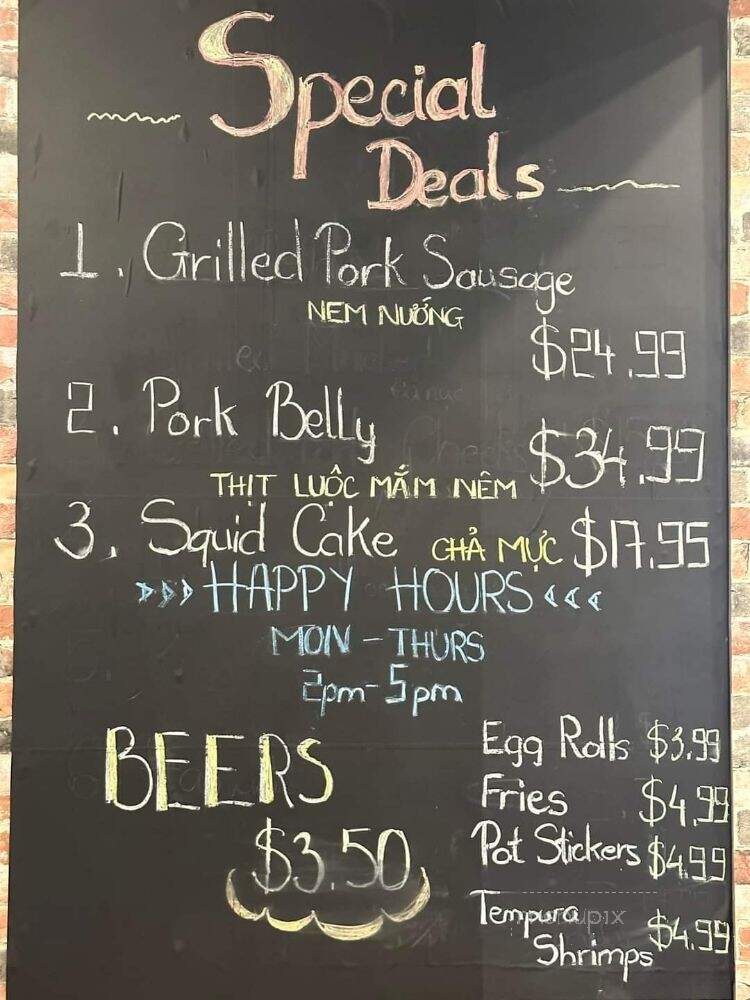 Special
Deals
1. Grilled Pork Sausage
NEM NƯỚNG
$24.99
2. Pork Belly
$34.99
THỊT LUỘC MẮM NÊM
3. Squid Cake CHẢ MỰC $17.95
HAPPY HOURS
MON - THURS
2pm - 5pm
BEERS
$3.50
Egg Rolls $3.99
Fries $4.99
Pot Stickers $4.99
Tempura
Shrimps $4.99